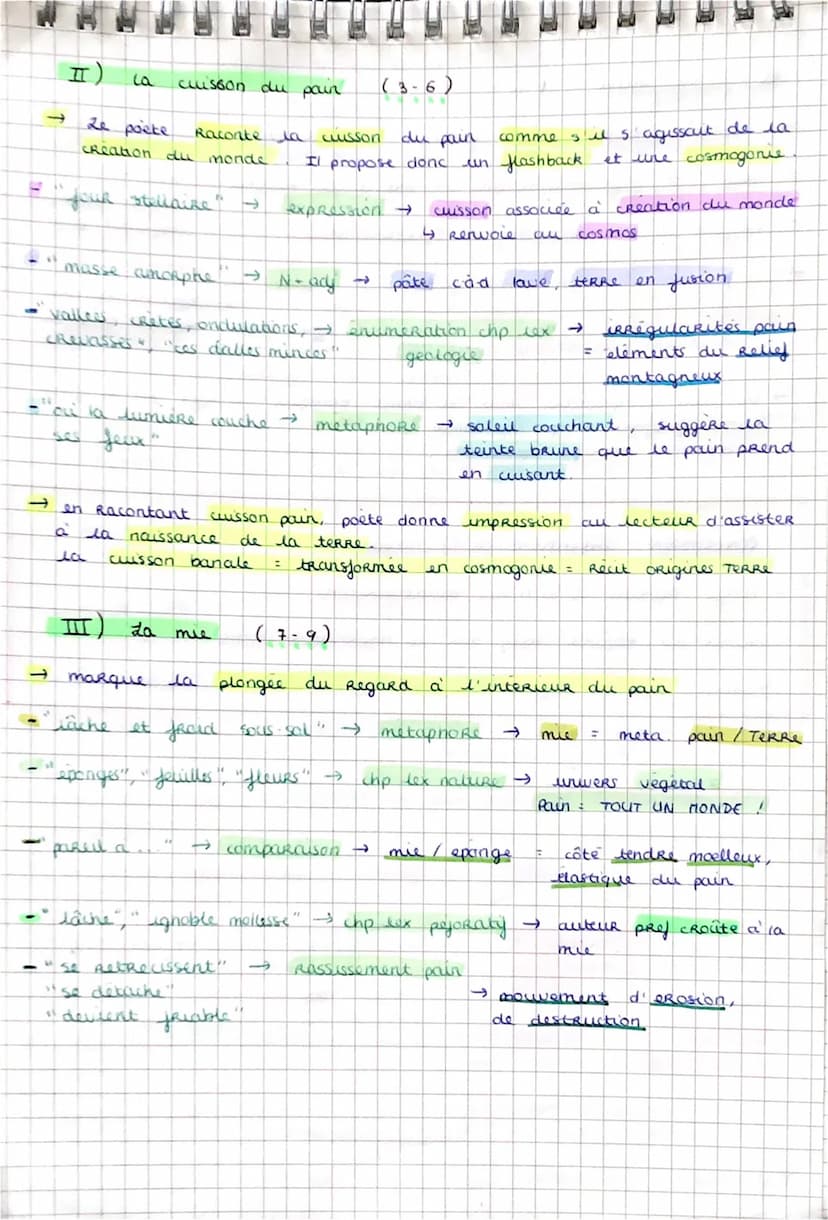 II) La cuisson du pain (3-6)
→ Le poète raconte la cuisson du pain comme s'il s'agissait de la
création du monde. Il propose donc un flashback et une cosmogonie.
- "four stellaire" → expression → cuisson associée à création du monde
↳ renvoie au cosmos
- "masse amorphe" → N-adj → pâte càd lave, terre en fusion
- "vallées, crêtes, ondulations, → énumération chp lex → irrégularités pain
crevasses", "ces dalles minces" géologie = éléments du relief
montagneux
- "où la lumière couche → métaphore → soleil couchant, suggère la
ses feux" teinte brune que le pain prend
en cuisant.
→ en racontant cuisson pain, poète donne impression au lecteur d'assister
à la naissance de la terre.
La cuisson banale = transformée en cosmogonie = récit origines TERRE
III) La mie (7-9)
→ marque la plongée du regard à l'intérieur du pain
- "lâche et froid sous-sol" → métaphore → mie = meta. pain / TERRE
- "éponges", "feuilles", "fleurs" → chp lex nature → univers végétal
Pain : TOUT UN MONDE !
- "pareil à ..." → comparaison → mie / éponge = côté tendre moelleux,
élastique du pain
- "lâche", "ignoble mollesse" → chp lex péjoratif → auteur pref croûte à la
mie
- "se rétrécissent" → rassissement pain
"se détache" → mouvement d'érosion,
"devient friable" de destruction